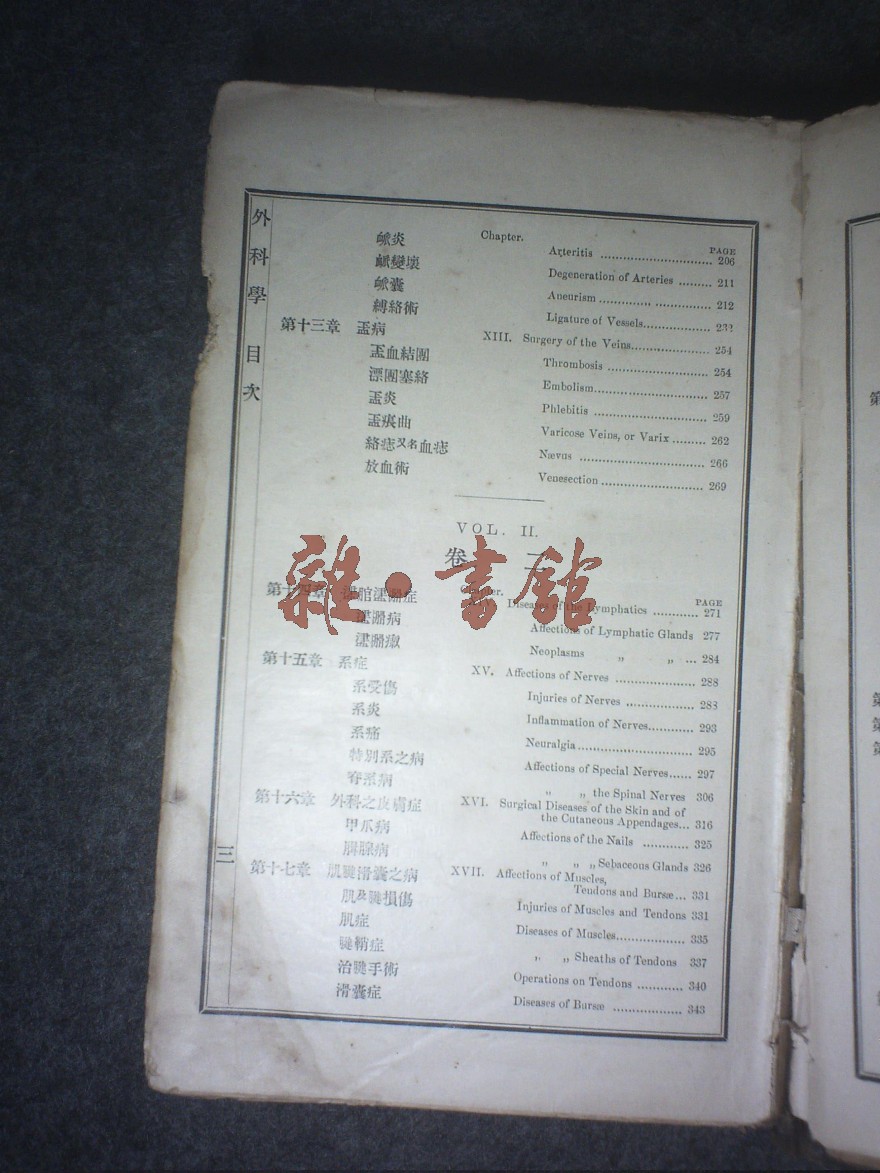 外科學 目次
Chapter. PAGE
衇炎 Arteritis 206
衇變壞 Degeneration of Arteries 211
衇囊 Aneurism 212
縛絡術 Ligature of Vessels 232
第十三章 衁病 XIII. Surgery of the Veins 254
衁血結團 Thrombosis 254
漂團塞絡 Embolism 257
衁炎 Phlebitis 259
衁痕曲 Varicose Veins, or Varix 262
絡痣又名血痣 Nævus 266
放血術 Venesection 269
VOL. II.
卷 二
Chapter. PAGE
第十四章 症 Diseases of the Lymphatics 271
病 Affections of Lymphatic Glands 277
Neoplasms „ „ 284
第十五章 系症 XV. Affections of Nerves 288
系受傷 Injuries of Nerves 288
系炎 Inflammation of Nerves 293
系痛 Neuralgia 295
特別系之病 Affections of Special Nerves 297
脊系病 „ „ the Spinal Nerves 306
第十六章 外科之皮膚症 XVI. Surgical Diseases of the Skin and of
the Cutaneous Appendages 316
甲爪病 Affections of the Nails 325
腺病 „ „ „ Sebaceous Glands 326
第十七章 肌腱滑囊之病 XVII. Affections of Muscles,
Tendons and Bursæ 331
肌及腱損傷 Injuries of Muscles and Tendons 331
肌症 Diseases of Muscles 335
腱鞘症 „ „ Sheaths of Tendons 337
治腱手術 Operations on Tendons 340
滑囊症 Diseases of Bursæ 343
三
雜·書館
第
第
第
第